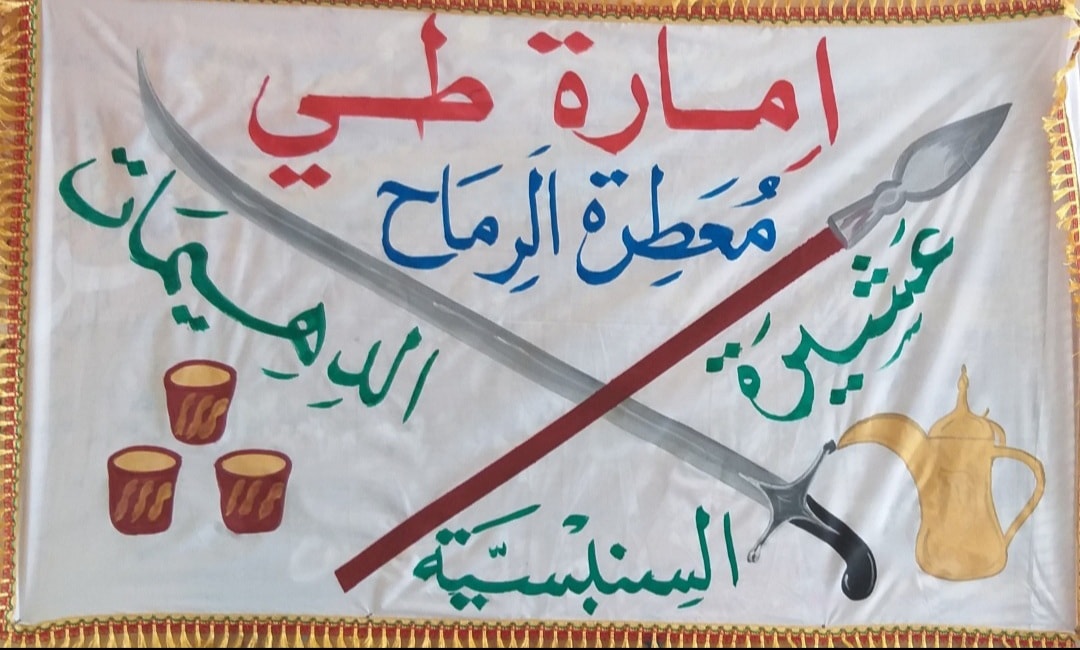 اِمارة طي
مُعَطِرة اَلرِمَاح
عشَيرَة الدهِيمَات
السِنبْسيَّة